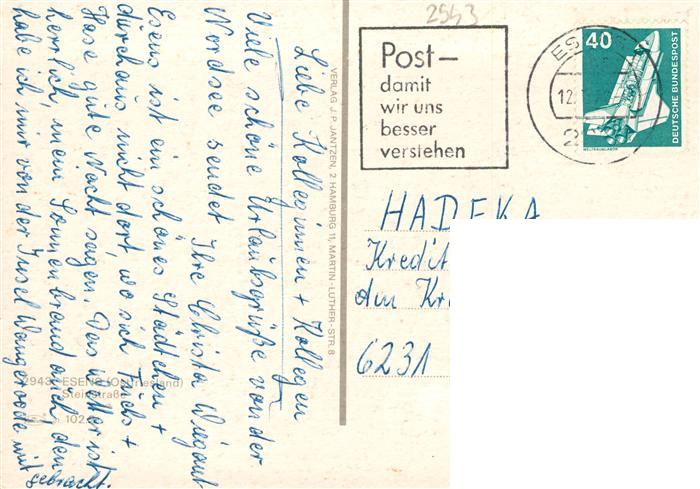 Liebe Kolleginnen + Kollegen
Viele schöne Urlaubsgrüße von der
Nordsee sendet Ihre Christa Wiegant
Esens ist ein schönes Städtchen +
durchaus nicht dort, wo sich Fuchs +
Hase gute Nacht sagen. Das Wetter ist
herrlich, mein Sonnenbrand auch, den
habe ich mir von der Insel Wangerooge mit
gebracht.
2943 ESENS (Ostfriesland)
Steinstraße
102
VERLAG J. P. JANTZEN, 2 HAMBURG 11, MARTIN-LUTHER-STR. 8
2543
Post–
damit
wir uns
besser
verstehen
ES
12.
2
40
DEUTSCHE BUNDESPOST
WELTRAUMLABOR
HADEKA
Kredit
den Kr
6231